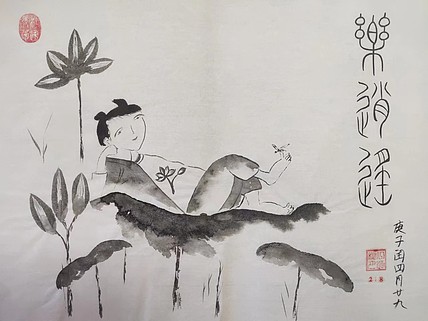 樂逍遥
庚子闰四月廿九